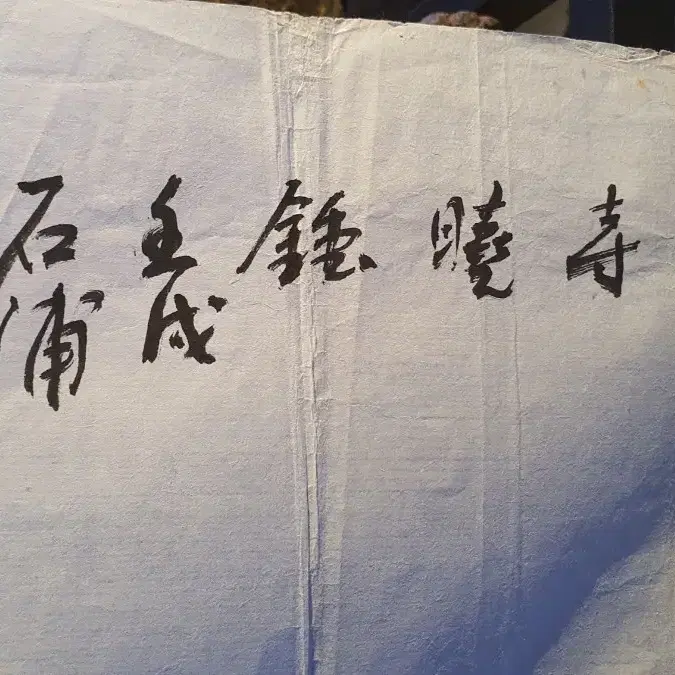 寺曉鍾
壬戌
石浦